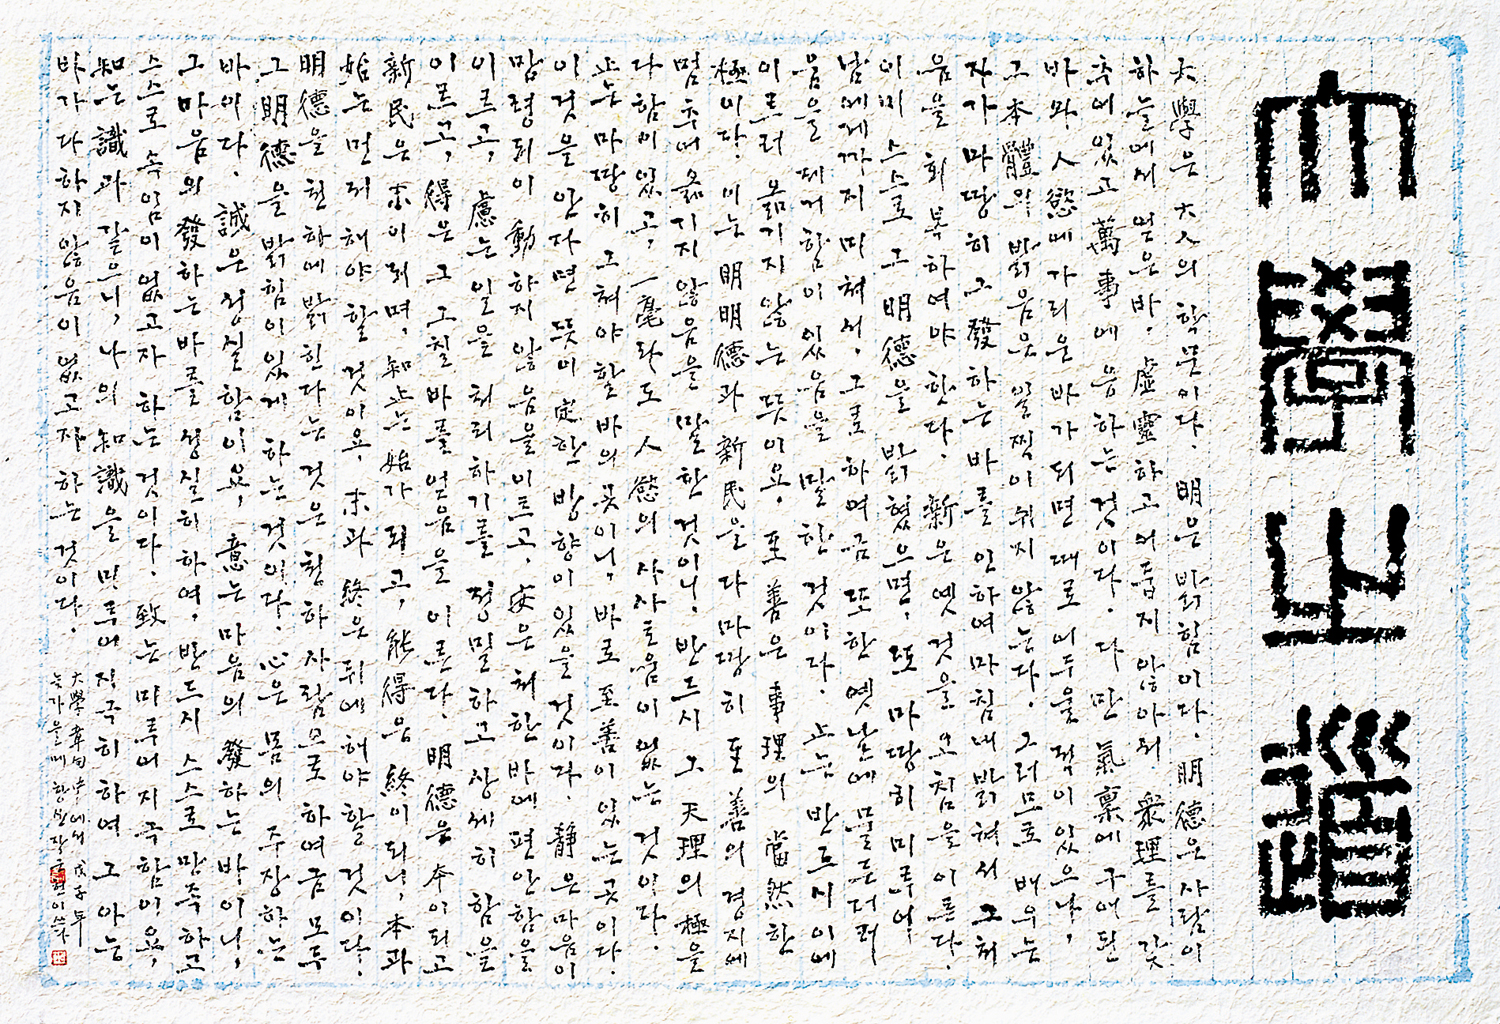 大學之道
大學은 大人의 학문이다. 明은 밝힘이다. 明德은 사람이
하늘에서 얻은 바, 虛靈하고 어둡지 않아서 衆理를 갖
추어 있고 萬事에 응하는 것이다. 다만 氣稟에 구애된
바와 人慾에 가리운 바가 되면 때로 어두울 적이 있으나,
그 本體의 밝음은 일찍이 쉬지 않는다. 그러므로 배우는
자가 마땅히 그 發하는 바를 인하여 마침내 밝혀서 그 처
음을 회복하여야 한다. 新은 옛것을 고침을 이른다.
이미 스스로 그 明德을 밝혔으면, 또 마땅히 미루어
남에게까지 미쳐서, 그로 하여금 또한 옛날에 물든 더러
움을 제거함이 있음을 말한 것이다. 止는 반드시 이에
이르러 옮기지 않는 뜻이요, 至善은 事理의 當然한
極이다. 이는 明明德과 新民을 다 마땅히 至善의 경지에
멈추어 옮기지 않음을 말한 것이니, 반드시 그 天理의 極을
다함이 있고, 一毫라도 人慾의 사사로움이 없는 것이다.
止는 마땅히 그쳐야 할 바의 곳이니, 바로 至善이 있는 곳이다.
이것을 안다면 뜻이 定한 방향이 있을 것이다. 靜은 마음이
망령되이 動하지 않음을 이르고, 安은 처한 바에 편안함을
이르고, 慮는 일을 처리하기를 정밀하고 상세히 함을
이르고, 得은 그 그칠 바를 얻음을 이른다. 明德은 本이 되고
新民은 末이 되며, 知止는 始가 되고, 能得은 終이 되니, 本과
始는 먼저 해야 할 것이요, 末과 終은 뒤에 해야 할 것이다.
明德을 천하에 밝힌다는 것은 천하 사람으로 하여금 모두
그 明德을 밝힘이 있게 하는 것이다. 心은 몸의 주장하는
바이다. 誠은 성실함이요, 意는 마음의 發하는 바이니,
그 마음의 發하는 바를 성실히 하여, 반드시 스스로 만족하고
스스로 속임이 없고자 하는 것이다. 致는 미루어 지극함이요,
知는 識과 같으니, 나의 知識을 미루어 지극히 하여 그 아는
바가 다하지 않음이 없고자 하는 것이다.
大學章句中에서 戊子年
늦가을에